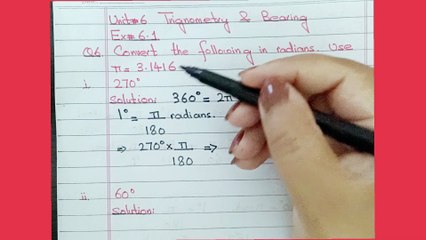 Unit#6 Trignometry & Bearing
Ex#6.1
Q6. Convert the following in radians. Use
π = 3.1416
i. 270°
Solution: 360° = 2π
1° = π/180 radians.
⇒ 270° × π/180 ⇒
ii. 60°
Solution: